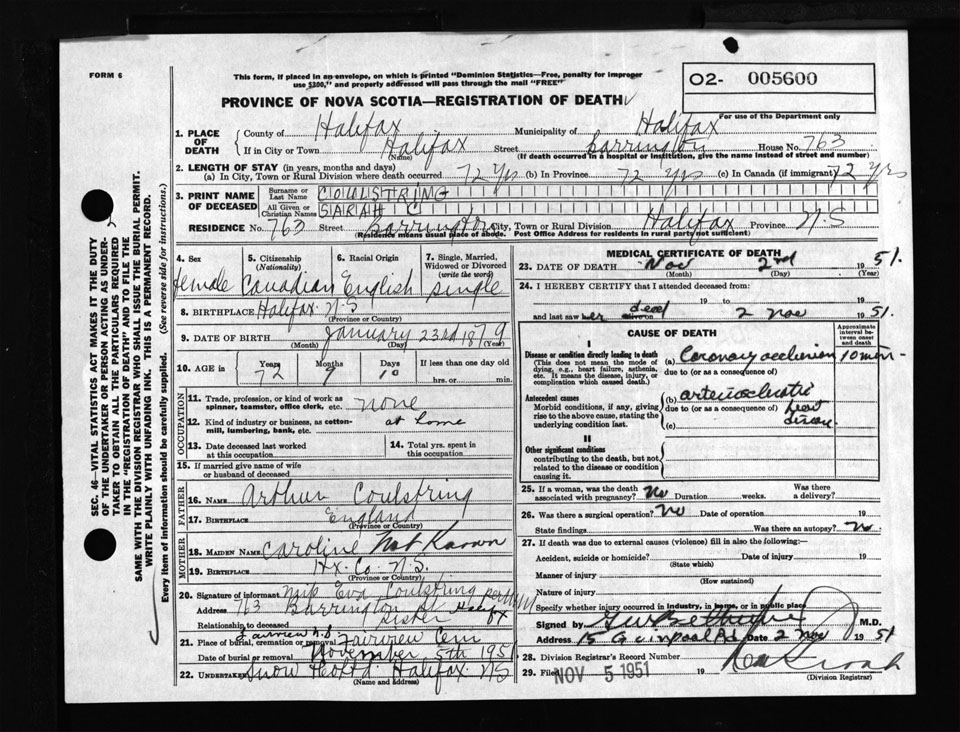 FORM 6
This form, if placed in an envelope, on which is printed "Dominion Statistics—Free, penalty for improper
use $300," and properly addressed will pass through the mail "FREE"
O2- 005600
For use of the Department only
PROVINCE OF NOVA SCOTIA—REGISTRATION OF DEATH
SEC. 46—VITAL STATISTICS ACT MAKES IT THE DUTY
OF THE UNDERTAKER OR PERSON ACTING AS UNDER-
TAKER TO OBTAIN ALL THE PARTICULARS REQUIRED
IN THE "REGISTRATION OF DEATH" AND TO FILE THE
SAME WITH THE DIVISION REGISTRAR WHO SHALL ISSUE THE BURIAL PERMIT.
WRITE PLAINLY WITH UNFADING INK. THIS IS A PERMANENT RECORD.
Every item of information should be carefully supplied. (See reverse side for instructions.)
1. PLACE OF DEATH County of Halifax Municipality of Halifax
If in City or Town Halifax (Name) Street Barrington House No. 763
(If death occurred in a hospital or institution, give the name instead of street and number)
2. LENGTH OF STAY (in years, months and days)
(a) In City, Town or Rural Division where death occurred 72 yrs (b) In Province 72 yrs (c) In Canada (if immigrant) 72 yrs
3. PRINT NAME OF DECEASED Surname or Last Name COULSTRING
All Given or Christian Names SARAH C
RESIDENCE No. 763 Street Barrington City, Town or Rural Division Halifax Province N.S
(Residence means usual place of abode. Post Office Address for residents in rural parts not sufficient)
4. Sex female
5. Citizenship (Nationality) Canadian
6. Racial Origin English
7. Single, Married, Widowed or Divorced (write the word) single
8. BIRTHPLACE Halifax N.S
(Province or Country)
9. DATE OF BIRTH January 23rd 1879
(Month) (Day) (Year)
10. AGE in Years 72 Months 9 Days 10 If less than one day old
hrs. or min.
OCCUPATION
11. Trade, profession, or kind of work as spinner, teamster, office clerk, etc. none
12. Kind of industry or business, as cotton-mill, lumbering, bank, etc. at home
13. Date deceased last worked at this occupation
14. Total yrs. spent in this occupation
15. If married give name of wife or husband of deceased
FATHER
16. Name Arthur Coulstring
17. BIRTHPLACE England
(Province or Country)
MOTHER
18. MAIDEN NAME Caroline Not Known
19. BIRTHPLACE Hx. Co. N.S.
(Province or Country)
20. Signature of informant Miss Eva Coulstring
Address 763 Barrington St Halifax
Relationship to deceased sister
21. Place of burial, cremation or removal Fairview Cem
Fairview N.S.
Date of burial or removal November 5th 1951
22. UNDERTAKER Snow & Co Ltd. Halifax N.S
(Name and Address)
MEDICAL CERTIFICATE OF DEATH
23. DATE OF DEATH Nov 2nd 1951.
(Month) (Day) (Year)
24. I HEREBY CERTIFY that I attended deceased from:
19 to 19
and last saw her dead alive on 2 Nov 1951.
CAUSE OF DEATH
Approximate interval between onset and death
I
Disease or condition directly leading to death
(This does not mean the mode of dying, e.g., heart failure, asthenia, etc. It means the disease, injury, or complication which caused death.)
(a) Coronary occlusion 10 min
due to (or as a consequence of)
Antecedent causes
Morbid conditions, if any, giving rise to the above cause, stating the underlying condition last.
(b) arteriosclerotic
due to (or as a consequence of) heart disease
(c)
II
Other significant conditions
contributing to the death, but not related to the disease or condition causing it.
25. If a woman, was the death associated with pregnancy? No Duration weeks. Was there a delivery?
26. Was there a surgical operation? No Date of operation 19
State findings Was there an autopsy? No
27. If death was due to external causes (violence) fill in also the following:—
Accident, suicide or homicide? Date of injury 19
(State which)
Manner of injury
(How sustained)
Nature of injury
Specify whether injury occurred in industry, in home, or in public place
Signed by M.D.
Address 15 Date 2 Nov 1951
28. Division Registrar's Record Number
29. Filed NOV 5 1951 19
(Division Registrar)